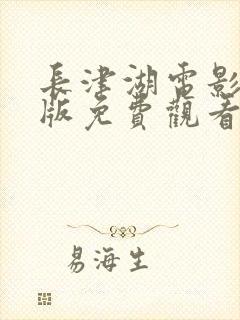 長津湖電影
版免費觀看
易海生